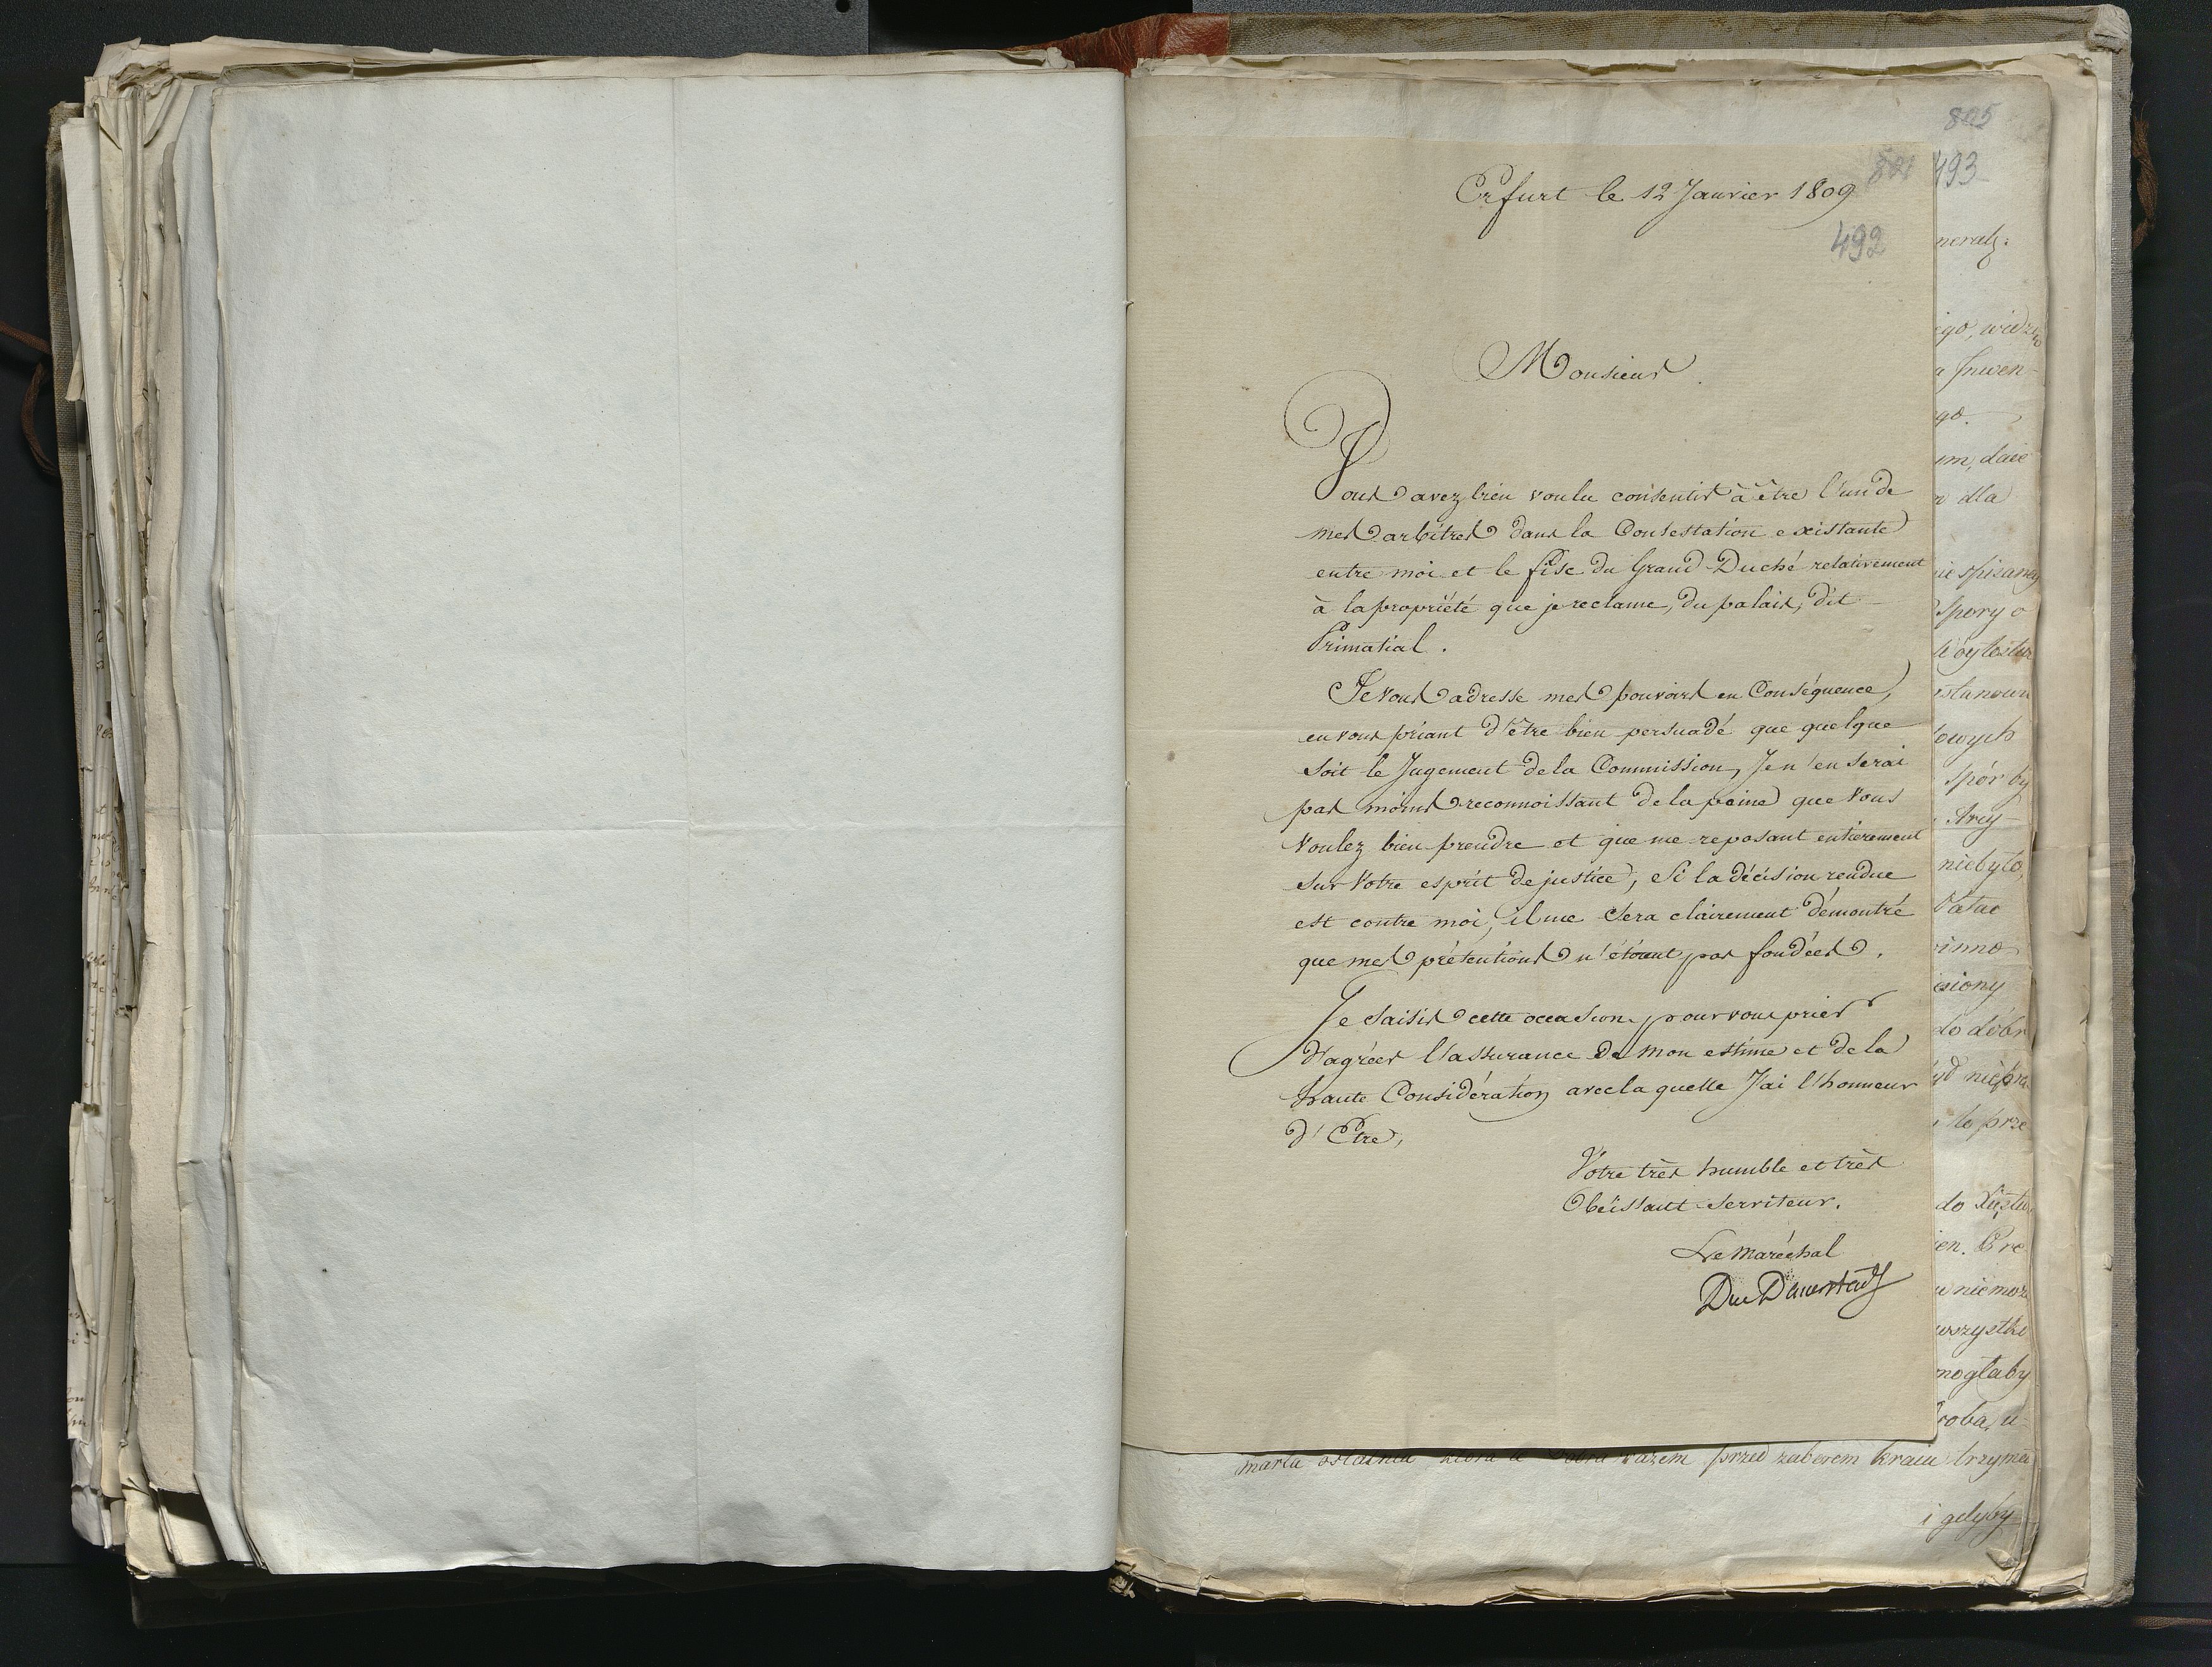 805
801
493
Erfurt le 12 Janvier 1809
492
Monsieur
Vous avez bien voulu consentir à être l'un de
mes arbitres dans la Contestation existante
entre moi et le fisc du Grand-Duché relativement
à la propriété que je reclame, du palais, dit
Primatial.
Je vous adresse mes pouvoirs en Conséquence,
en vous priant d'être bien persuadé que quelque
soit le Jugement de la Commission, Je n'en serai
pas moins reconnoissant de la peine que vous
voulez bien prendre et que me reposant entierement
sur Votre esprit de justice, si la décision rendue
est contre moi, il me sera clairement démontré
que mes prétentions n'étoient pas fondées.
Je saisis cette occasion pour vous prier
d'agréer l'assurance de mon estime et de la
haute Considération avec la quelle J'ai l'honneur
d'Etre,
Votre très humble et très
Obéissant serviteur.
Le maréchal
Duc Dauerstaedt
neralz:
ego, widzę
a Inwen-
go.
um, daie
n dla
ie spisaney
Spory o
owych
spór by
Arcy-
niebyło,
inno
isiony
do dóbr
to prze
do Xięstw
u niemoż
wszystki
mogłaby
soba, u-
marła ostatnia, która te Dobra razem przed zaborem kraiu trzyma
i gdyby